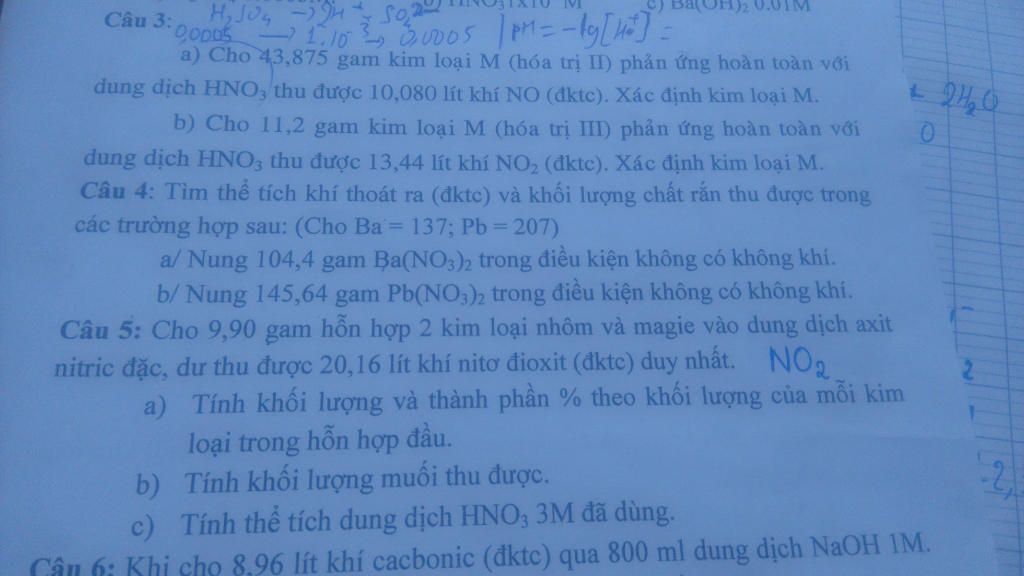 c) Ba(OH)₂ 0.01M
H₂SO₄ → 2H⁺ + SO₄²⁻
Câu 3:
0,0005 → 1.10⁻³ → 0,0005 | pH = -lg[H⁺] =
a) Cho 43,875 gam kim loại M (hóa trị II) phản ứng hoàn toàn với
dung dịch HNO₃ thu được 10,080 lít khí NO (đktc). Xác định kim loại M.
2H₂O
b) Cho 11,2 gam kim loại M (hóa trị III) phản ứng hoàn toàn với
0
dung dịch HNO₃ thu được 13,44 lít khí NO₂ (đktc). Xác định kim loại M.
Câu 4: Tìm thể tích khí thoát ra (đktc) và khối lượng chất rắn thu được trong
các trường hợp sau: (Cho Ba = 137; Pb = 207)
a/ Nung 104,4 gam Ba(NO₃)₂ trong điều kiện không có không khí.
b/ Nung 145,64 gam Pb(NO₃)₂ trong điều kiện không có không khí.
Câu 5: Cho 9,90 gam hỗn hợp 2 kim loại nhôm và magie vào dung dịch axit
nitric đặc, dư thu được 20,16 lít khí nitơ đioxit (đktc) duy nhất. NO₂
2
a) Tính khối lượng và thành phần % theo khối lượng của mỗi kim
loại trong hỗn hợp đầu.
b) Tính khối lượng muối thu được.
-2,
c) Tính thể tích dung dịch HNO₃ 3M đã dùng.
Câu 6: Khi cho 8,96 lít khí cacbonic (đktc) qua 800 ml dung dịch NaOH 1M.